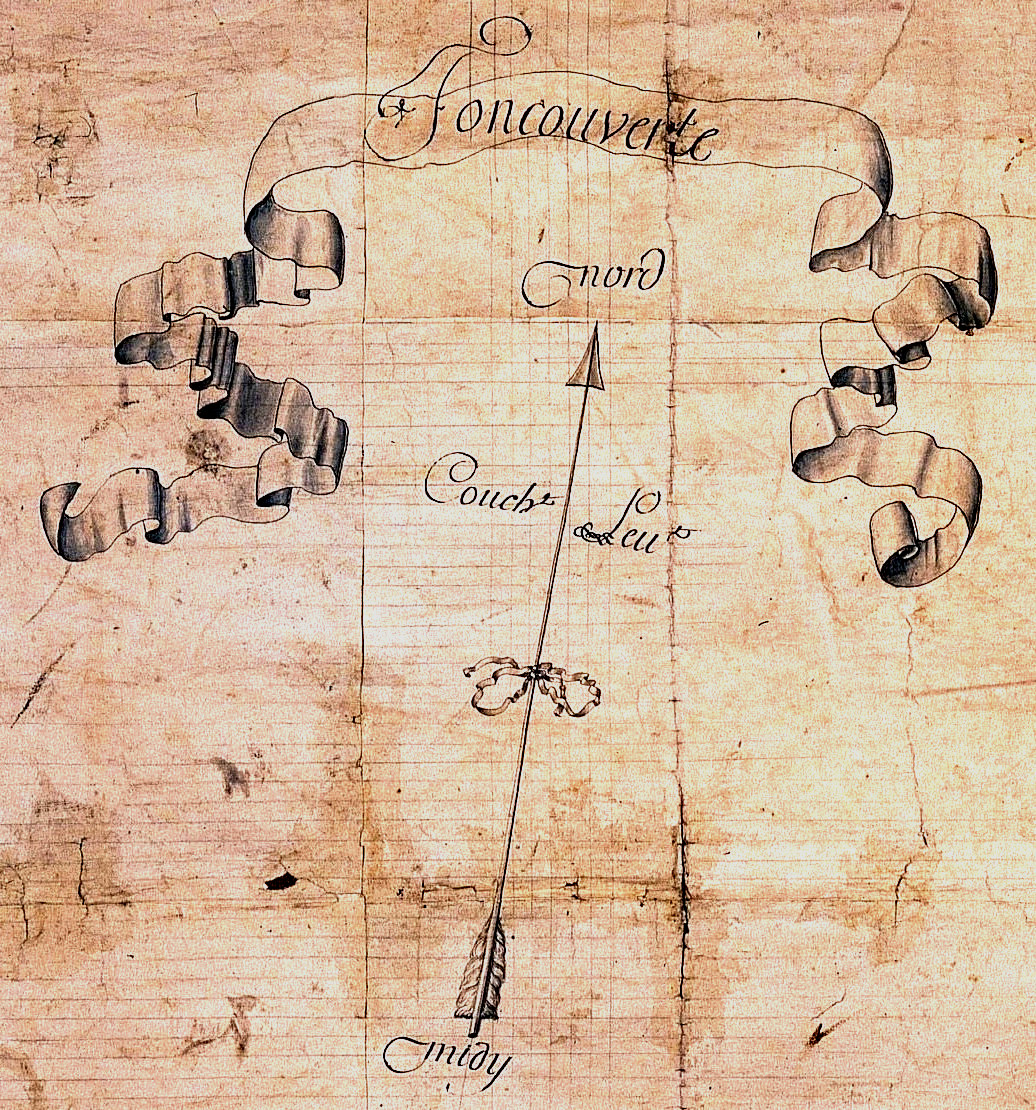 Foncouverte
nord
Couch^t
Leu^t
midy